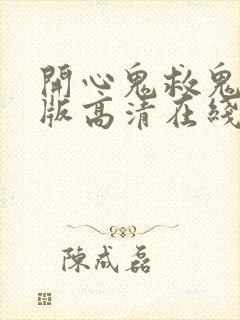 開心鬼救鬼
版高清在綫
陳成磊